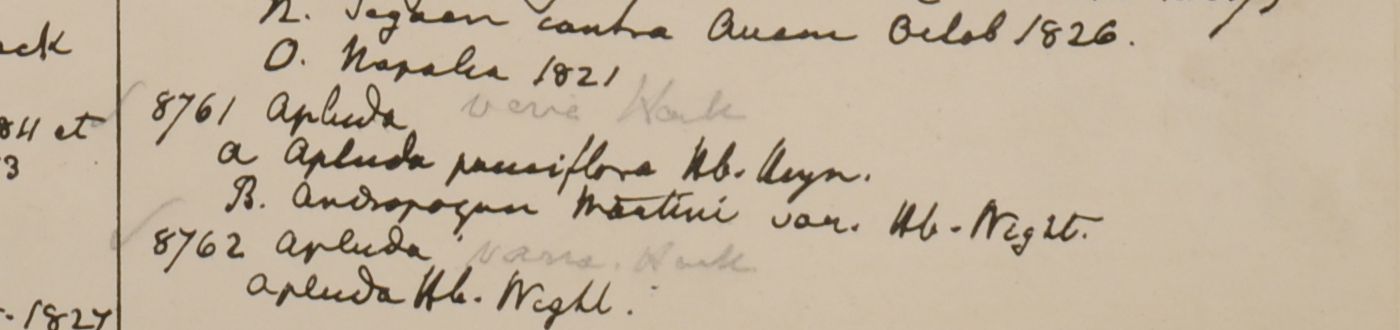 ack
84 et
3
- 1827
N. Segaen contra Auam Octob 1826.
O. Napalia 1821
8761 Apluda varia Hack
a Apluda pauciflora Hb. Heyn.
B. Andropogon Martini var. Hb. Wight.
8762 Apluda varia. Hack
Apluda Hb. Wight.